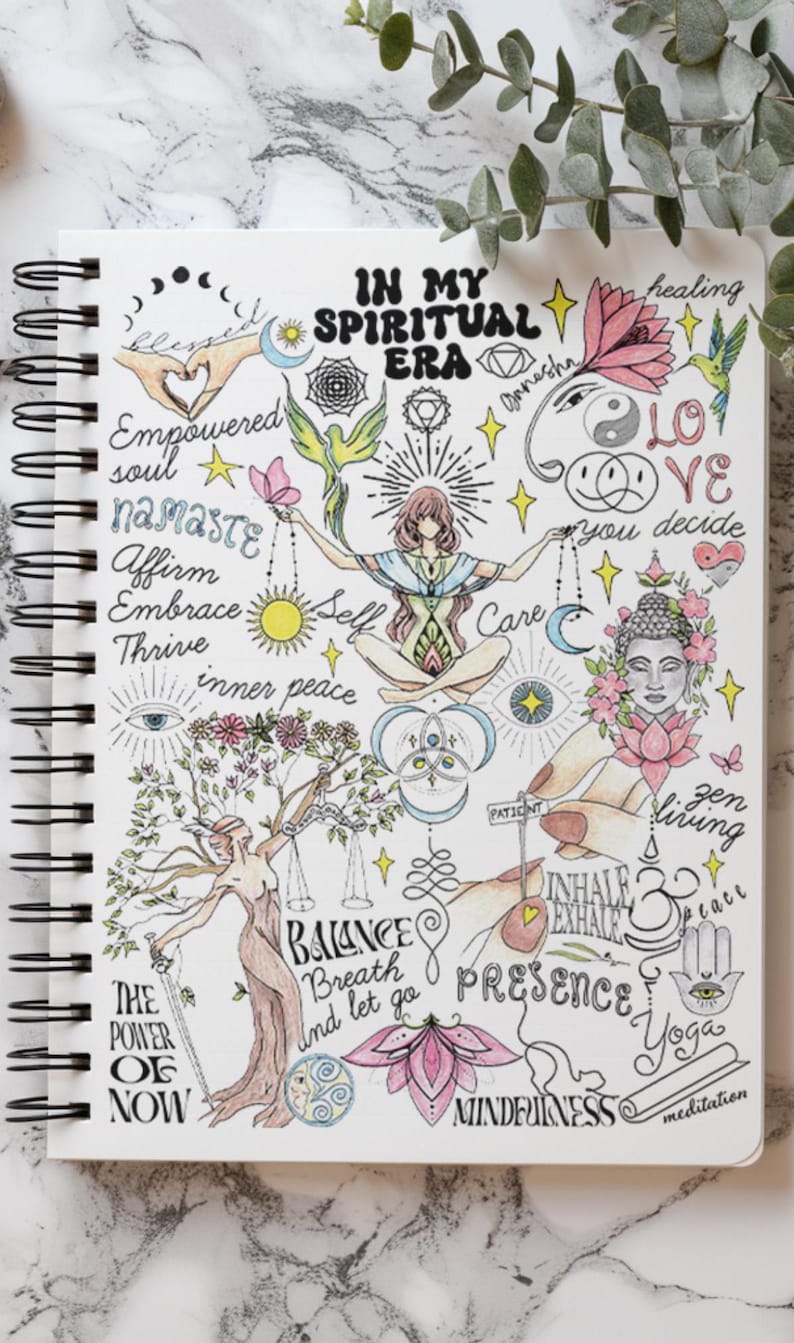 IN MY
SPIRITUAL
ERA
healing
blessed
Ganesha
Empowered
soul
LO
VE
NAMASTE
you decide
Affirm
Embrace
Thrive
Self Care
inner peace
PATIENT
zen
living
INHALE
EXHALE
peace
BALANCE
Breath
and let go
PRESENCE
THE
POWER
OF
NOW
Yoga
MINDFULNESS
meditation